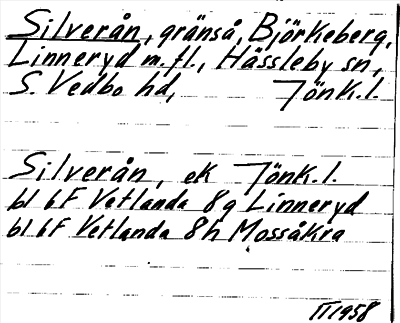 Silverån, gränså, Björkeberg,
Linneryd m.fl., Hässleby sn,
S. Vedbo hd, Jönk.l.
Silverån, ek Jönk.l.
bl 6F Vetlanda 8g Linneryd
bl 6F Vetlanda 8h Mossåkra
II 1958